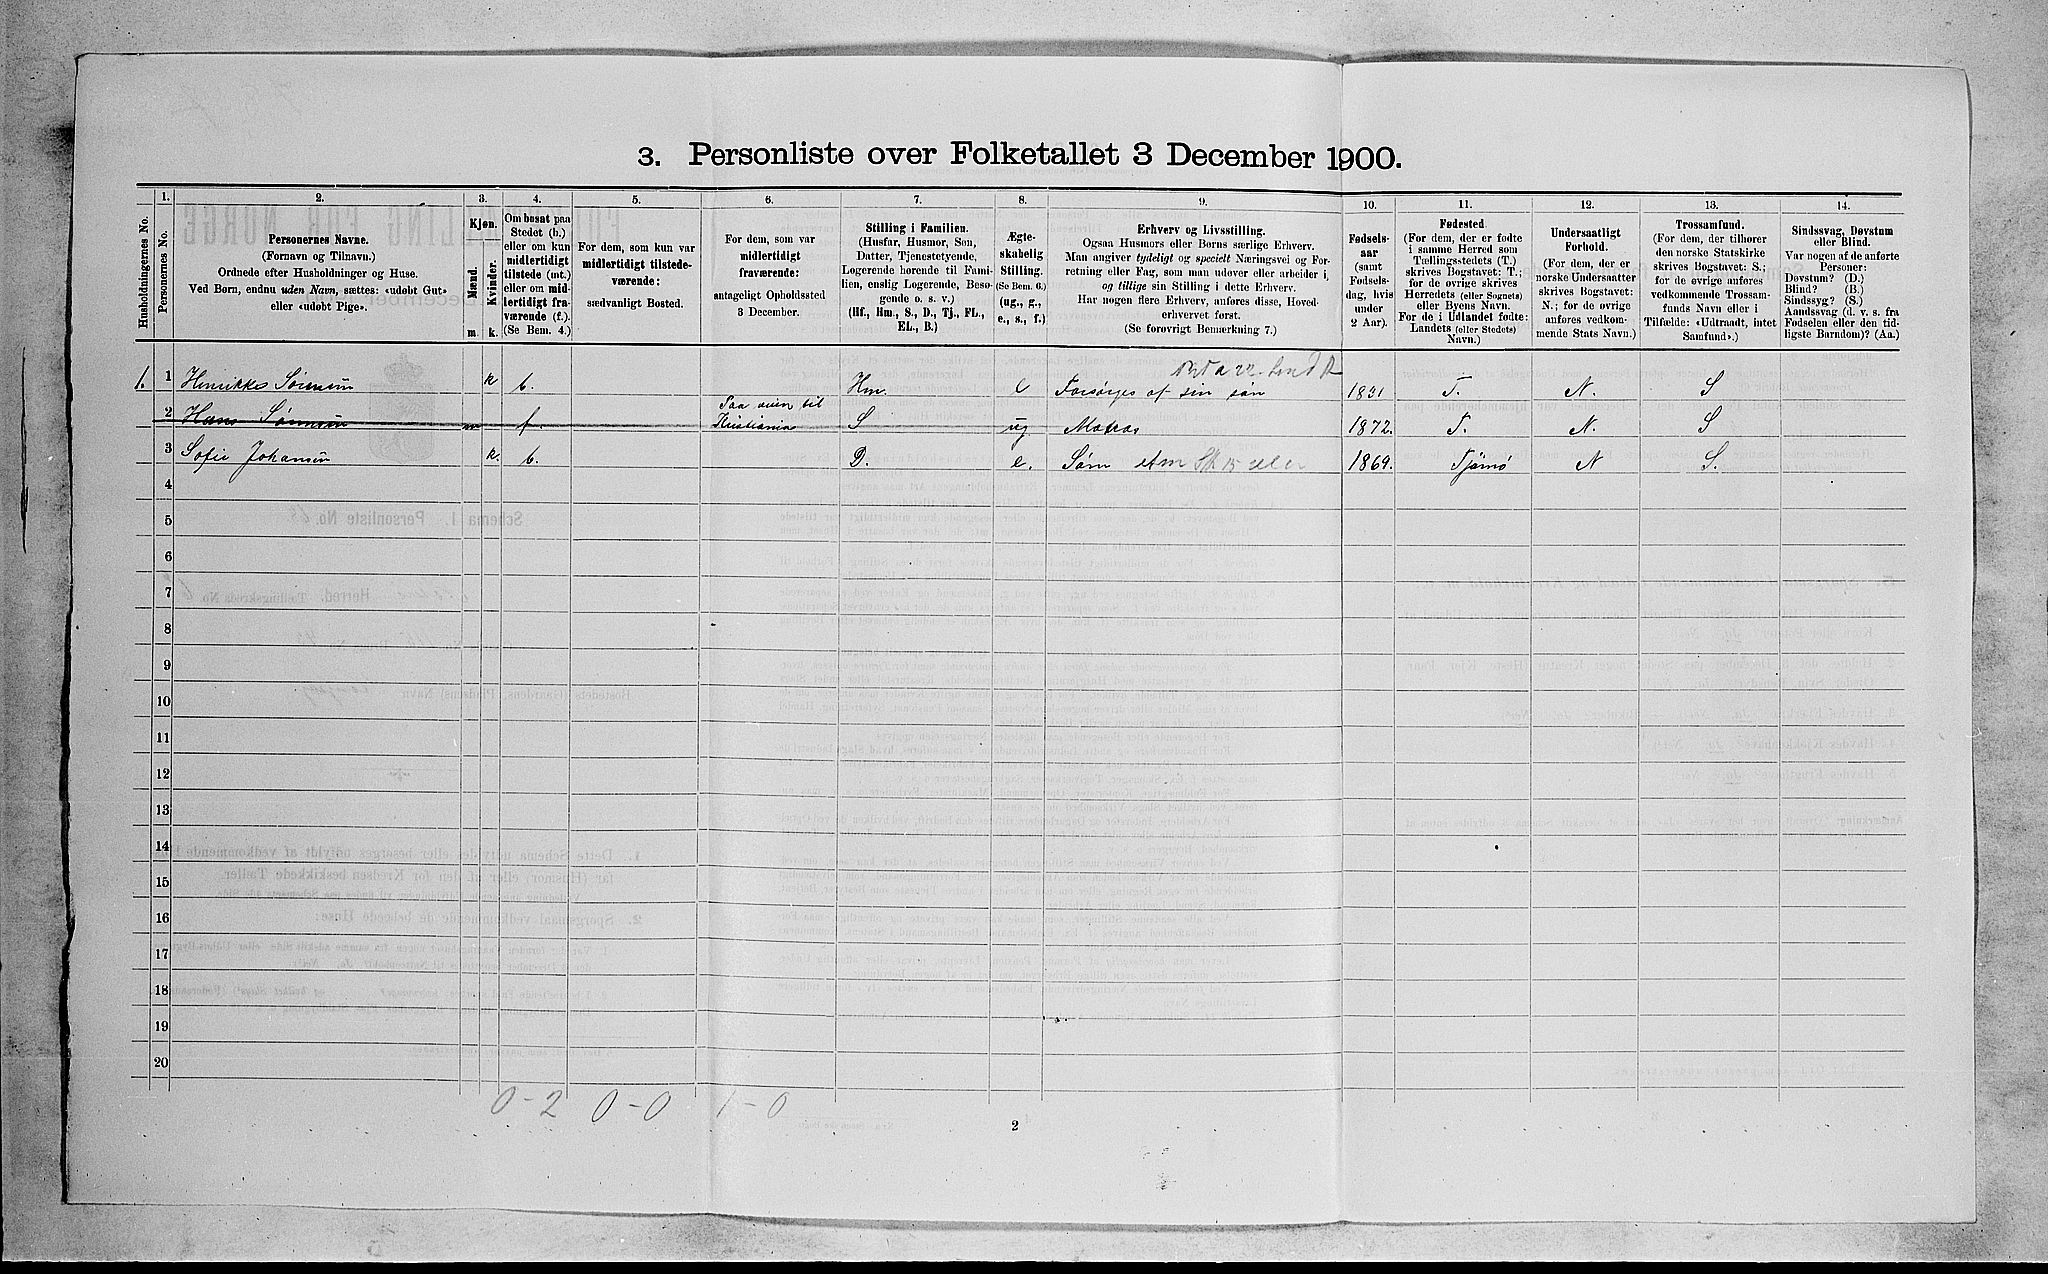 3. Personliste over Folketallet 3 December 1900.
Husholdningernes No.
1.
Personernes No.
2.
Personernes Navne.
(Fornavn og Tilnavn.)
Ordnede efter Husholdninger og Huse.
Ved Børn, endnu uden Navn, sættes: «udøbt Gut»
eller «udøbt Pige».
3.
Kjøn.
Mænd.
Kvinder.
m.
k.
4.
Om bosat paa
Stedet (b.)
eller om kun
midlertidigt
tilstede (mt.)
eller om mid-
lertidigt fra-
værende (f.).
(Se Bem. 4.)
5.
For dem, som kun var
midlertidigt tilstede-
værende:
sædvanligt Bosted.
6.
For dem, som var
midlertidigt
fraværende:
antageligt Opholdssted
3 December.
7.
Stilling i Familien.
(Husfar, Husmor, Søn,
Datter, Tjenestetyende,
Logerende hørende til Fami-
lien, enslig Logerende, Besø-
gende o. s. v.)
(Hf., Hm., S., D., Tj., FL.,
EL., B.)
8.
Ægte-
skabelig
Stilling.
(Se Bem. 6.)
(ug., g.,
e., s., f.)
9.
Erhverv og Livsstilling.
Ogsaa Husmors eller Børns særlige Erhverv.
Man angiver tydeligt og specielt Næringsvei og For-
retning eller Fag, som man udøver eller arbeider i,
og tillige sin Stilling i dette Erhverv.
Har nogen flere Erhverv, anføres disse, Hoved-
erhvervet først.
(Se forøvrigt Bemærkning 7.)
10.
Fødsels-
aar
(samt
Fødsels-
dag, hvis
under
2 Aar).
11.
Fødested.
(For dem, der er fødte
i samme Herred som
Tællingsstedets (T.)
skrives Bogstavet: T.;
for de øvrige skrives
Herredets (eller Sognets)
eller Byens Navn.
For de i Udlandet fødte:
Landets (eller Stedets)
Navn.)
12.
Undersaatligt
Forhold.
(For dem, der er
norske Undersaatter
skrives Bogstavet:
N.; for de øvrige
anføres vedkom-
mende Stats Navn.)
13.
Trossamfund.
(For dem, der tilhører
den norske Statskirke
skrives Bogstavet: S.;
for de øvrige anføres
vedkommende Trossam-
funds Navn eller i
Tilfælde: «Udtraadt, intet
Samfund».)
14.
Sindssvag, Døvstum
eller Blind.
Var nogen af de anførte
Personer:
Døvstum? (D.)
Blind? (B.)
Sindssyg? (S.)
Aandssvag (d. v. s. fra
Fødselen eller den tid-
ligste Barndom)? (Aa.)
1. 1 Henrikke Sørensen k b. Hm. e Forsørges af sin søn 1831 T. N. S
2 Hans Sørensen m f. Paa veien til
Kristiania S ug Matros 1872. T. N. S
3 Sofie Johansen k. b. D. e. Søm 1869. Tjømø N S.
4
5
6
7
8
9
10
11
12
13
14
15
16
17
18
19
20
0-2 0-0 1-0
2